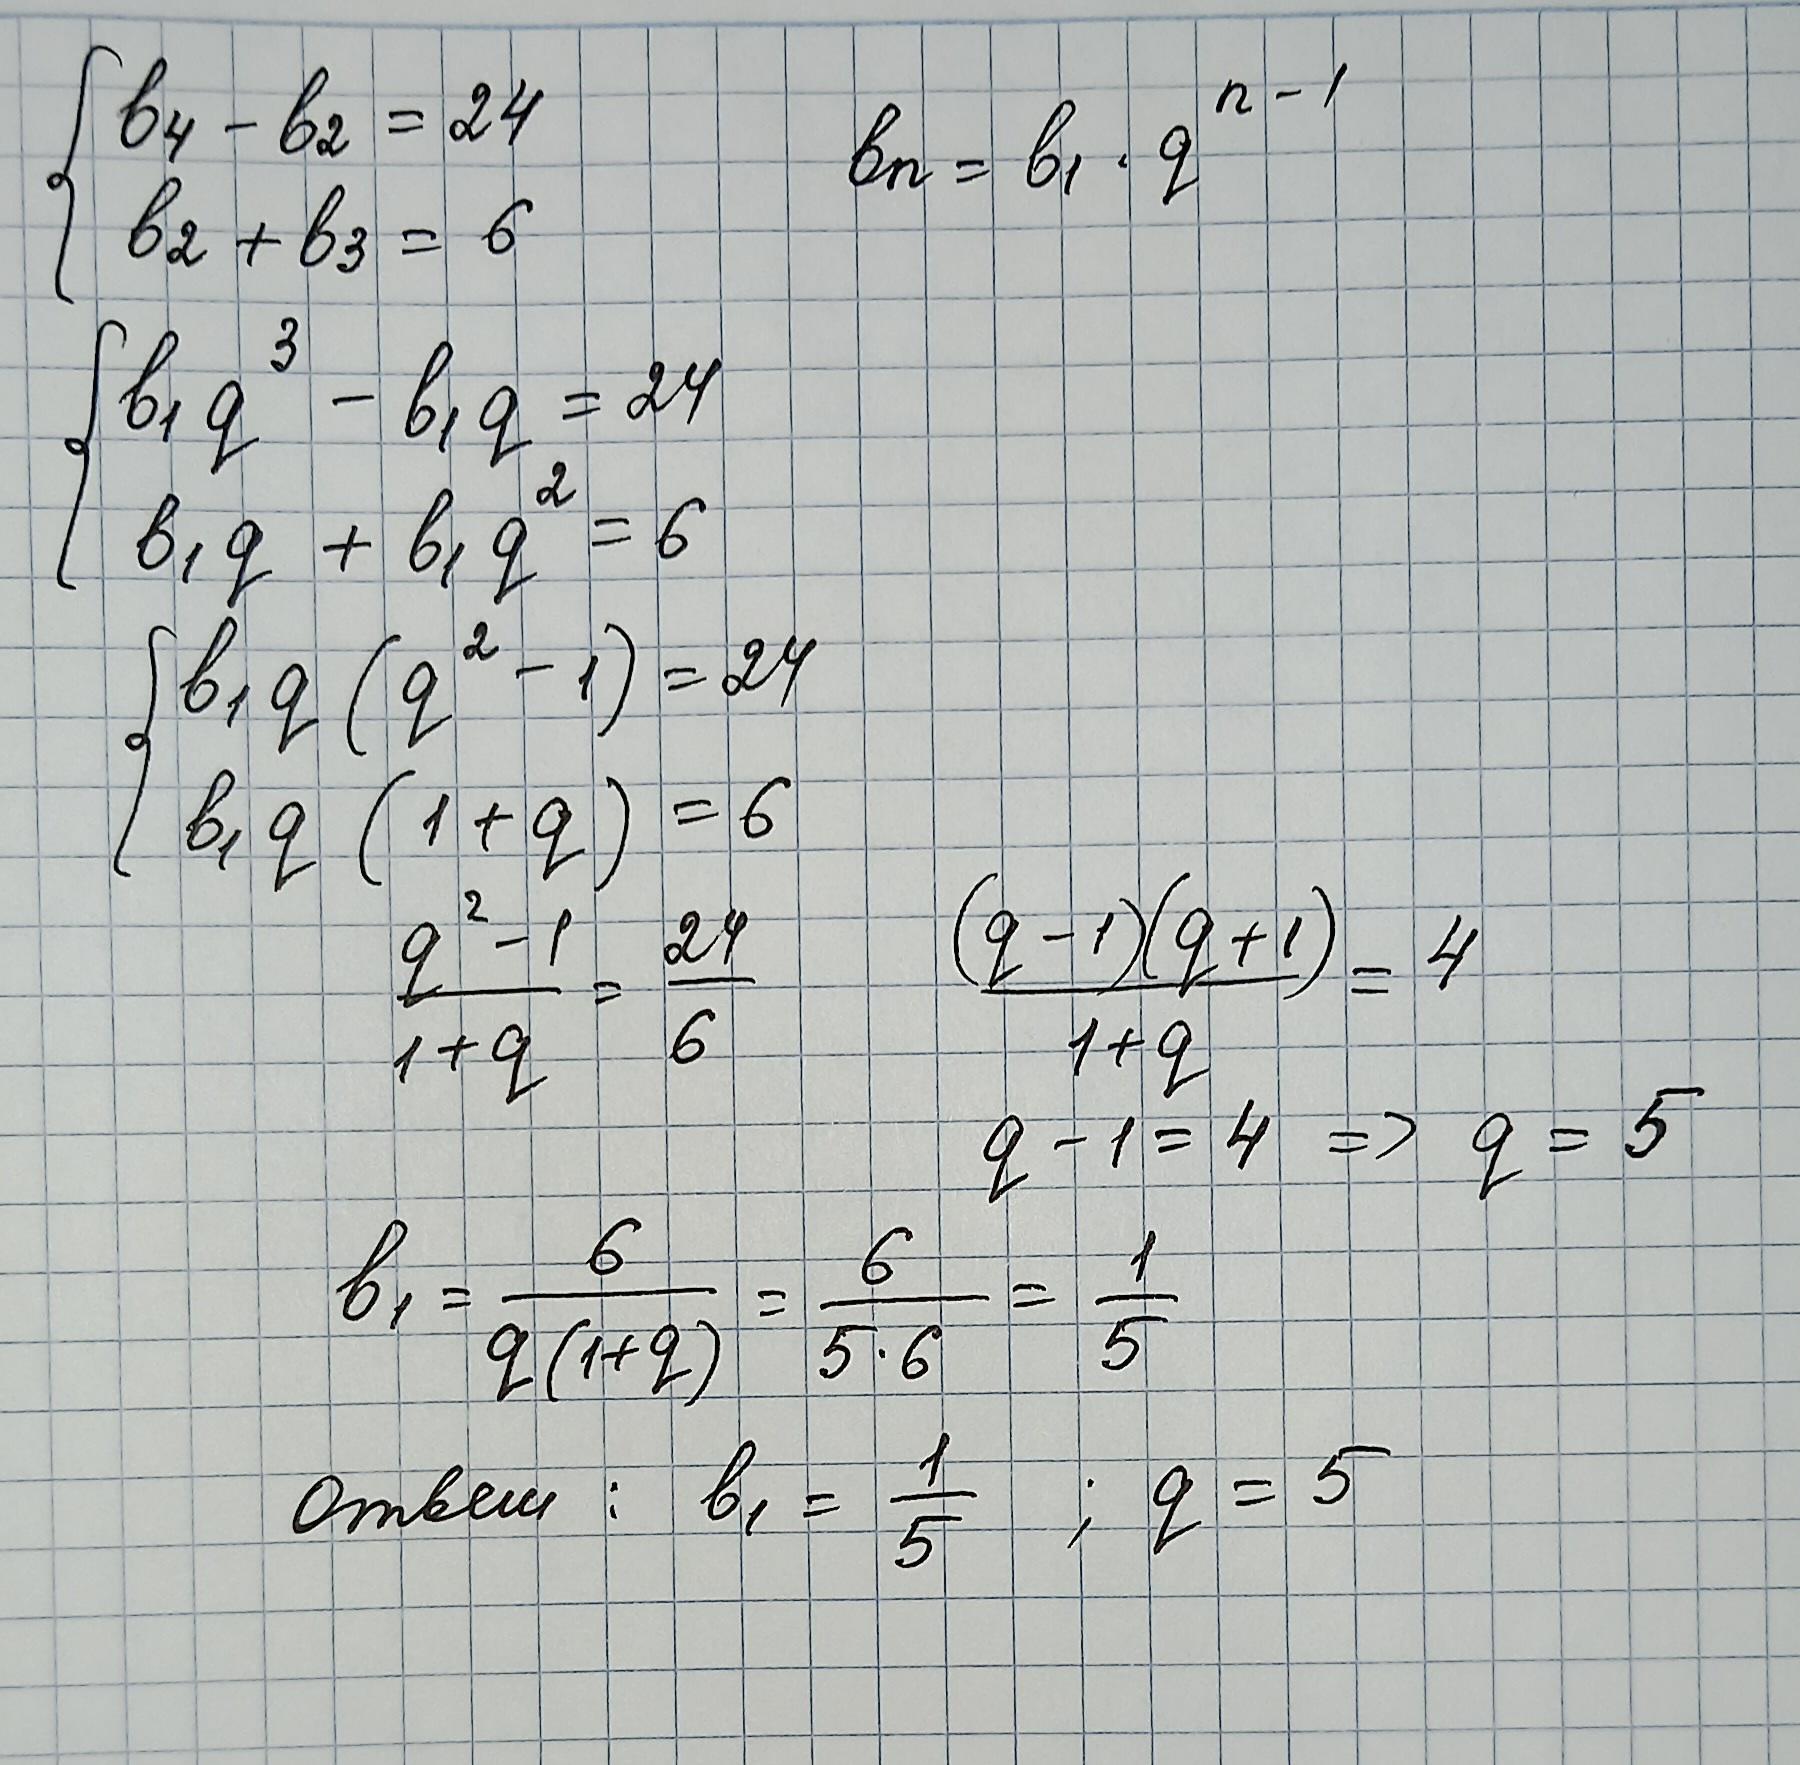 b₄ - b₂ = 24
b₂ + b₃ = 6
bₙ = b₁ · qⁿ⁻¹
b₁q³ - b₁q = 24
b₁q + b₁q² = 6
b₁q (q² - 1) = 24
b₁q (1 + q) = 6
(q² - 1)/(1 + q) = 24/6
((q - 1)(q + 1))/(1 + q) = 4
q - 1 = 4 => q = 5
b₁ = 6/(q(1+q)) = 6/(5·6) = 1/5
Ответ : b₁ = 1/5 ; q = 5